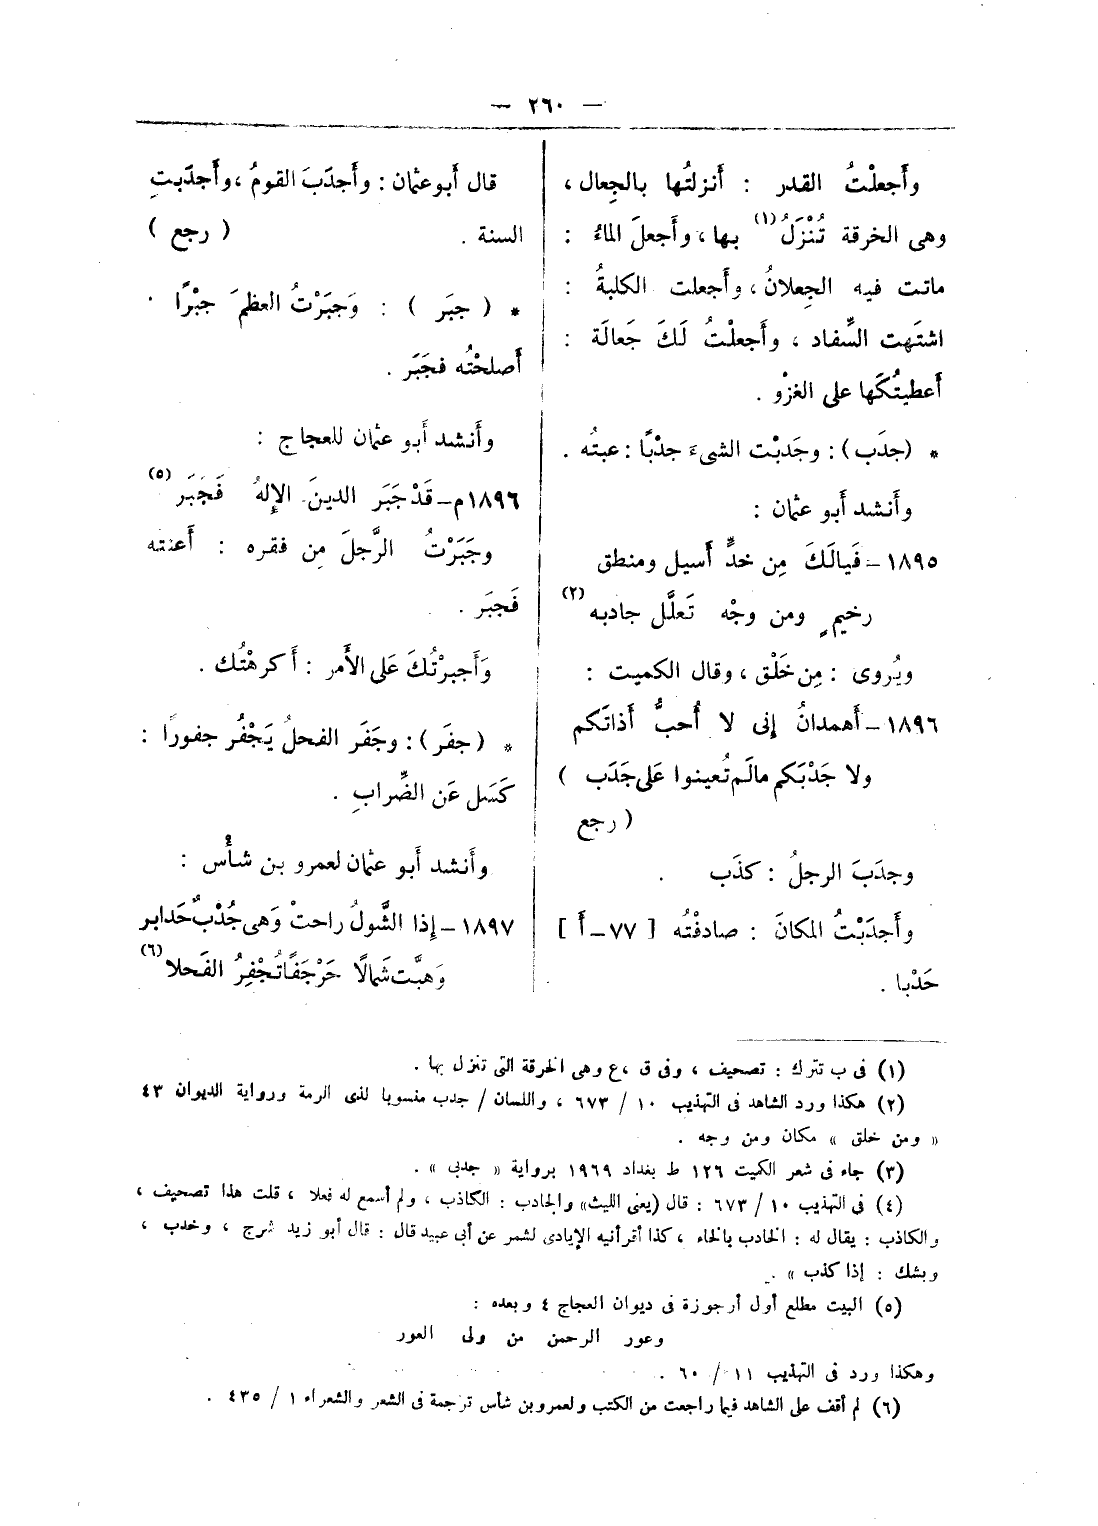 — ٢٦٠ —
وأَجعلْتُ القدر : أَنزلتُها بالجِعال ،
وهى الخرقة تُنْزَلُ(١) بها ، وأَجعلَ الماءُ :
ماتت فيه الجِعلانُ ، وأَجعلت الكلبةُ :
اشتَهت السِّفاد ، وأَجعلْتُ لَكَ جَعالَة :
أَعطيتُكَها على الغزْو .
* (جدَب) : وجَدبْت الشىءَ جدْبًا : عبتُه .
وأَنشد أَبو عثمان :
١٨٩٥ – فَيالَكَ مِن خدٍّ أَسيل ومنطق
رخيمٍ ومن وجْه تَعلَّل جادبه(٢)
ويُروى : مِن خَلْق ، وقال الكميت :
١٨٩٦ – أَهمدانُ إِنى لا أُحبُّ أَذاتَكم
ولا جَدْبَكم مالَم تُعينوا على جَدَب )
( رجع
وجدَبَ الرجلُ : كذَب .
وأَجدَبْتُ المكانَ : صادفْتُه [ ٧٧ – أَ ]
جَدْبا .
قال أَبوعثمان : وأَجدَبَ القومُ ، وأَجدَبتِ
السنة . ( رجع )
* ( جبَر ) : وَجبَرْتُ العظمَ جبْرًا .
أَصلحْتُه فجَبَر .
وأَنشد أَبو عثمان للعجاج :
١٨٩٦م – قَدْ جَبَر الدينَ الإِلهُ فَجُبَر(٥)
وجَبَرْتُ الرَّجلَ مِن فقره : أَعنته
فَجبَر .
وَأَجبرْتُكَ عَلى الأَمر : أَكرهْتُك .
* (جفَر) : وجَفَر الفحلُ يَجْفُر جفورًا :
كَسَل عَن الضِّرابِ .
وأَنشد أَبو عثمان لعمرو بن شأْس :
١٨٩٧ – إِذا الشَّولُ راحتْ وَهى جُدْبٌ حَدابر
وَهبَّت شَمالًا حَرْجَفًا تُجْفِرُ الفَحلا(٦)
(١) فى ب تترك : تصحيف ، وفى ق ، ع وهى الخرقة التى تنزل بها .
(٢) هكذا ورد الشاهد فى التهذيب ١٠ / ٦٧٣ ، واللسان / جدب منسوبا لذى الرمة ورواية الديوان ٤٣
« ومن خلق » مكان ومن وجه .
(٣) جاء فى شعر الكميت ١٢٦ ط بغداد ١٩٦٩ برواية « جدبى » .
(٤) فى التهذيب ١٠ / ٦٧٣ : قال (يعنى الليث» والجادب : الكاذب ، ولم أسمع له فعلا ، قلت هذا تصحيف ،
والكاذب : يقال له : الخادب بالخاء ، كذا أقرأنيه الإيادى لشمر عن أبى عبيد قال : قال أبو زيد شرج ، وخدب ،
وبشك : إذا كذب » .
(٥) البيت مطلع أول أرجوزة فى ديوان العجاج ٤ وبعده :
وعور الرحمن من ولى العور
وهكذا ورد فى التهذيب ١١ / ٦٠ .
(٦) لم أقف على الشاهد فيما راجعت من الكتب ولعمرو بن شأس ترجمة فى الشعر والشعراء ١ / ٤٣٥ .